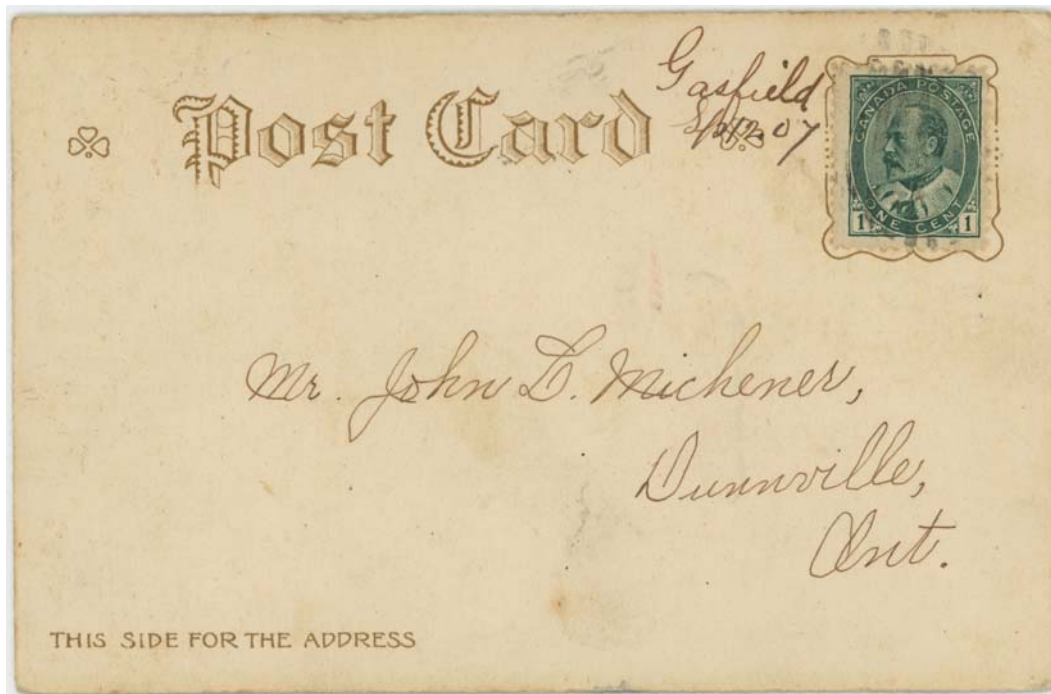 Post Card
Gasfield
07
CANADA POSTAGE
ONE CENT
1 1
Mr. John L. Michener,
Dunnville,
Ont.
THIS SIDE FOR THE ADDRESS